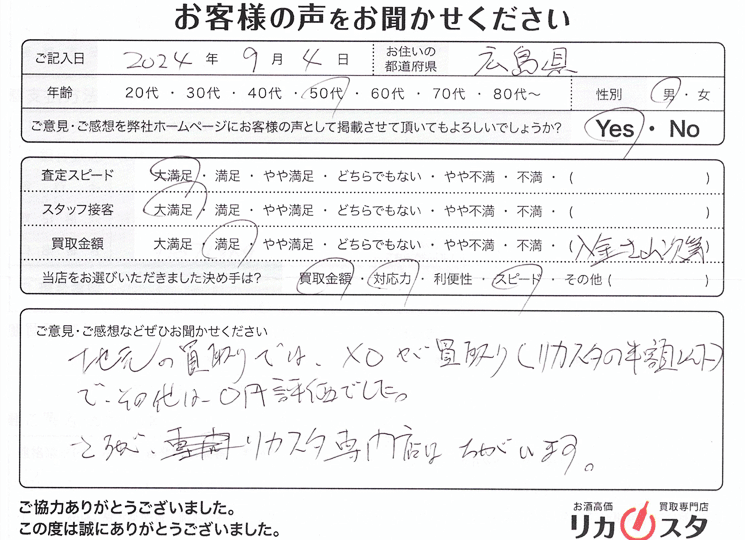 お客様の声をお聞かせください
ご記入日 2024 年 9 月 4 日 お住いの都道府県 広島県
年齢 20代・30代・40代・50代・60代・70代・80代～ 性別 男・女
ご意見・ご感想を弊社ホームページにお客様の声として掲載させて頂いてもよろしいでしょうか? Yes・No
査定スピード 大満足・満足・やや満足・どちらでもない・やや不満・不満・( )
スタッフ接客 大満足・満足・やや満足・どちらでもない・やや不満・不満・( )
買取金額 大満足・満足・やや満足・どちらでもない・やや不満・不満・(入金され次第)
当店をお選びいただきました決め手は? 買取金額・対応力・利便性・スピード・その他 ( )
ご意見・ご感想などぜひお聞かせください
地元の買取りでは、XOが買取り(リカスタの半額以下)
で、その他は0円評価でした。
さすが、リカスタ専門店はちがいます。
ご協力ありがとうございました。
この度は誠にありがとうございました。
お酒高価 買取専門店
リカスタ